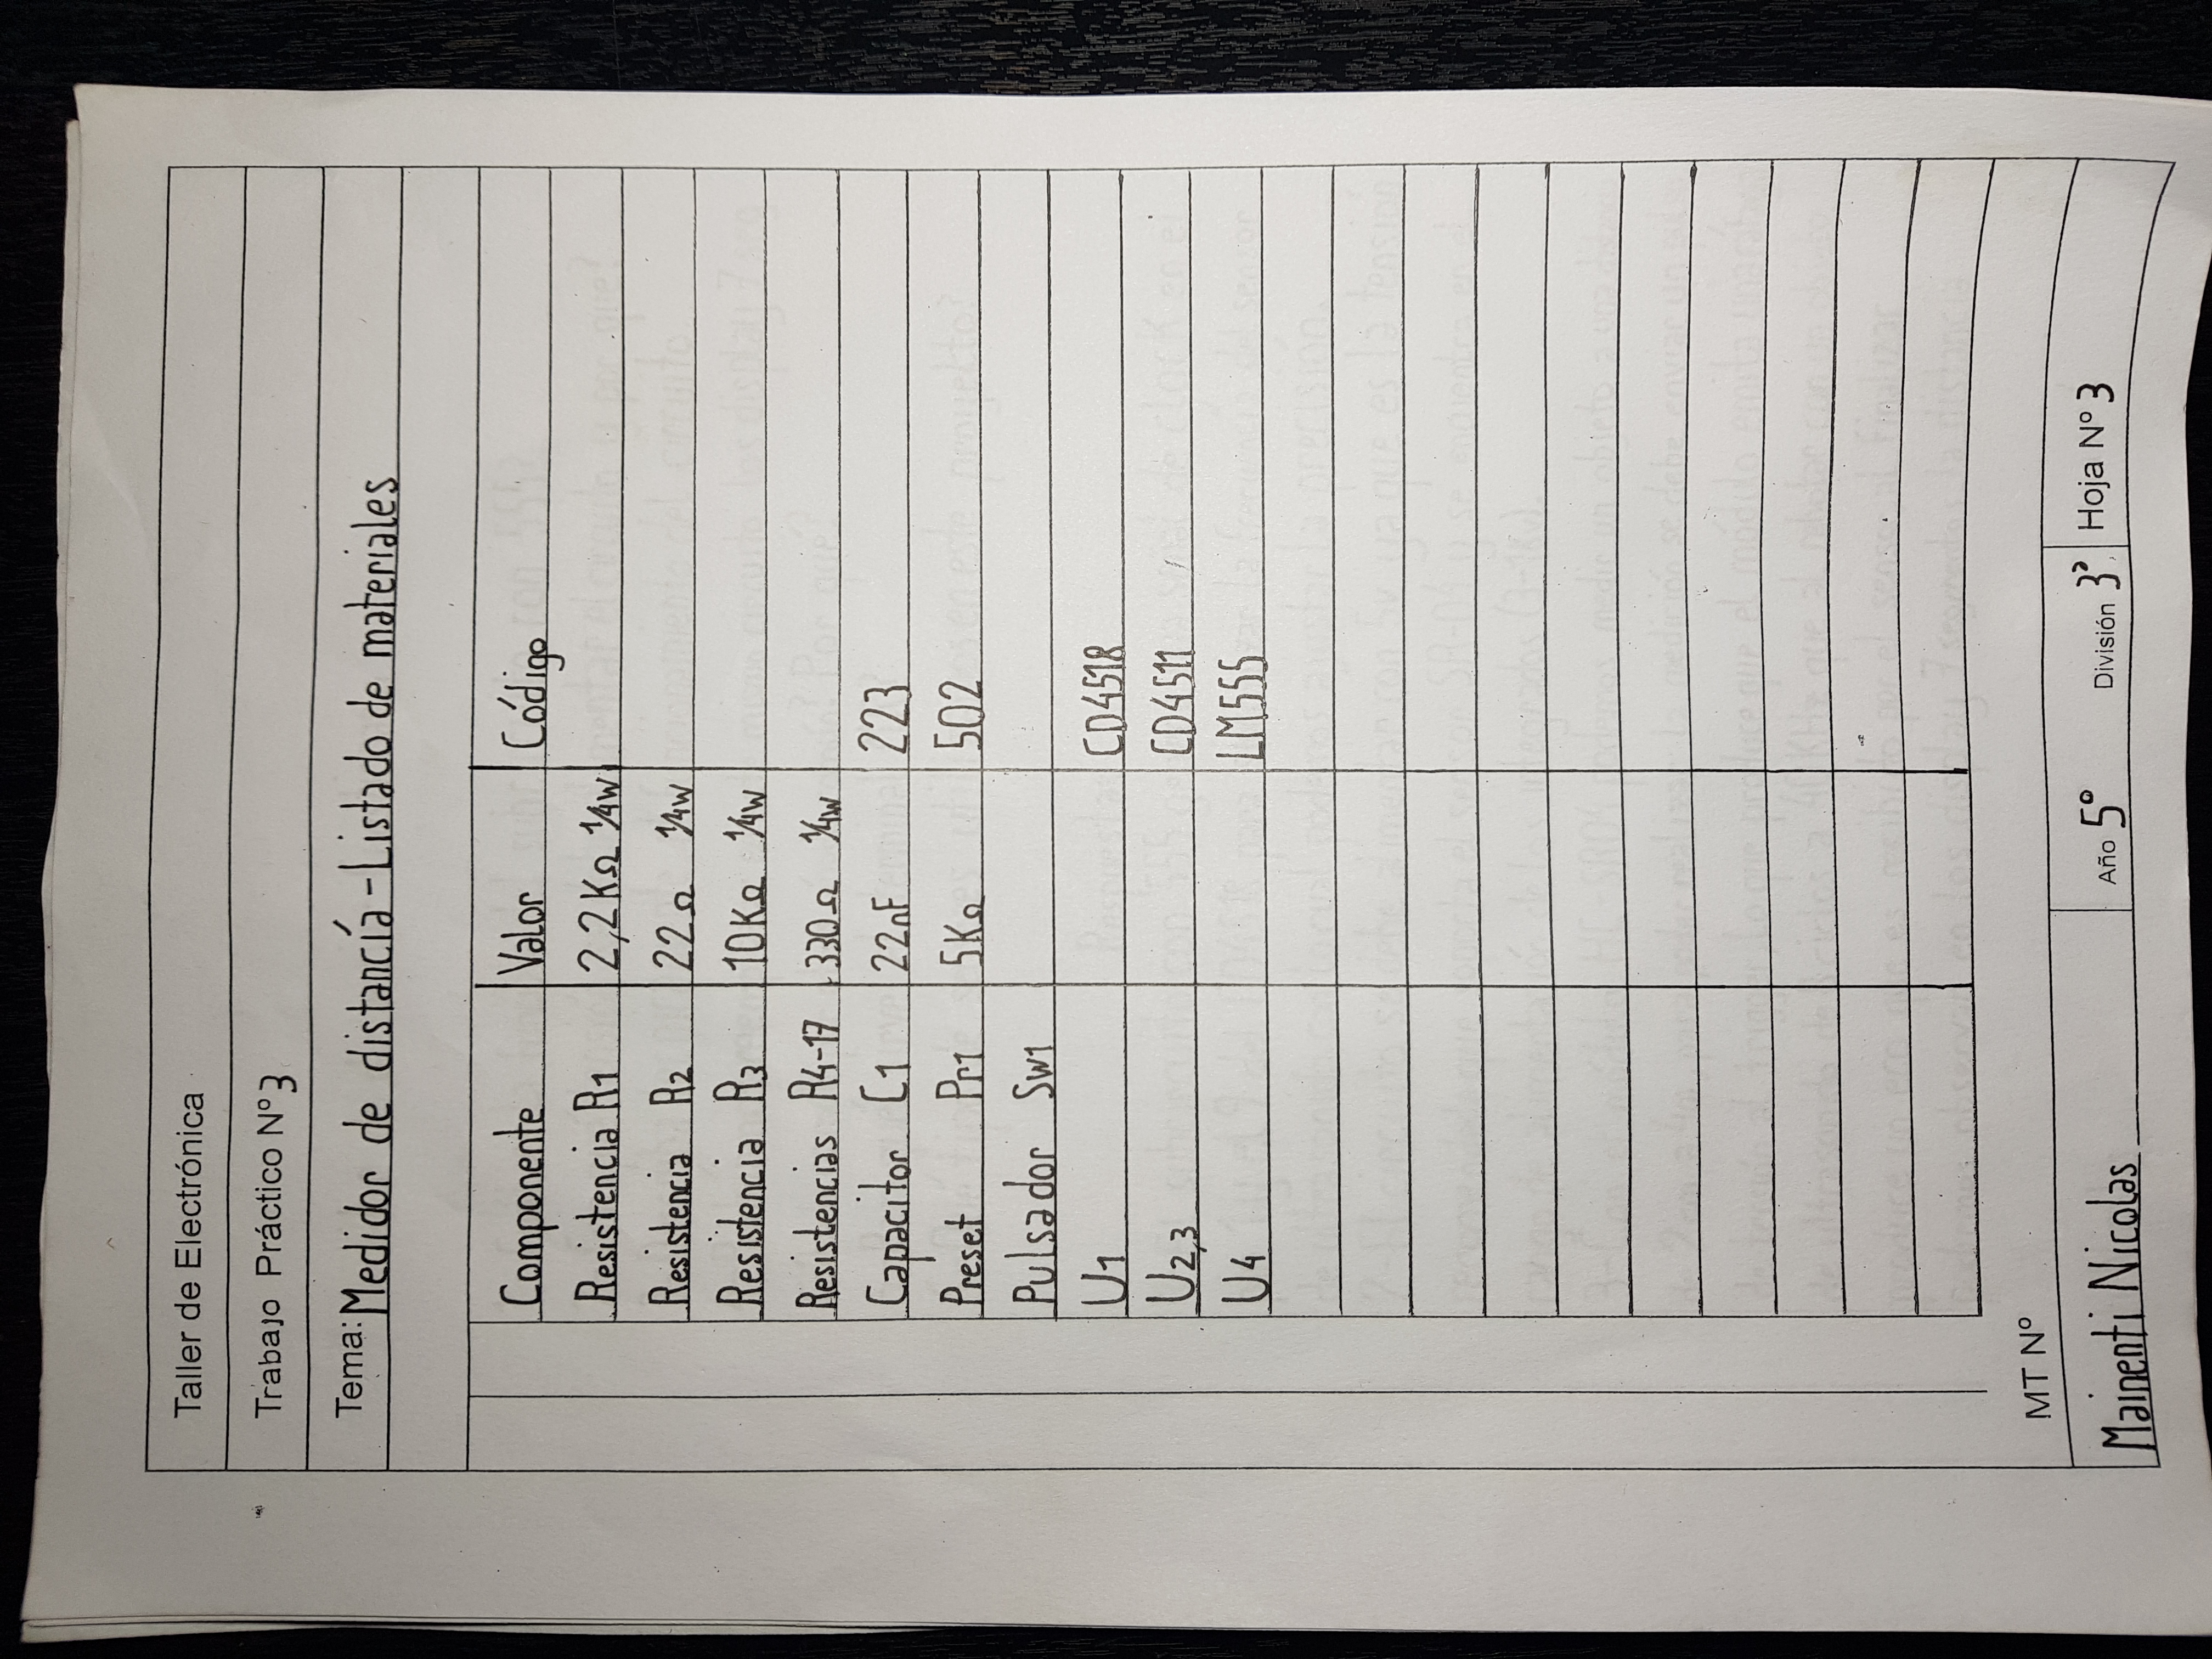 Taller de Electrónica
Trabajo Práctico Nº 3
Tema: Medidor de distancía - Listado de materiales
Componente Valor Código
Resistencia R1 2,2KΩ 1/4w
Resistencia R2 22Ω 1/4w
Resistencia R3 10KΩ 1/4w
Resistencias R4-17 330Ω 1/4w
Capacitor C1 22nF 223
Preset Pr1 5KΩ 502
Pulsador Sw1
U1 CD4518
U2,3 CD4511
U4 LM555
MT Nº
Mainenti Nicolas Año 5º División 3ª Hoja Nº 3